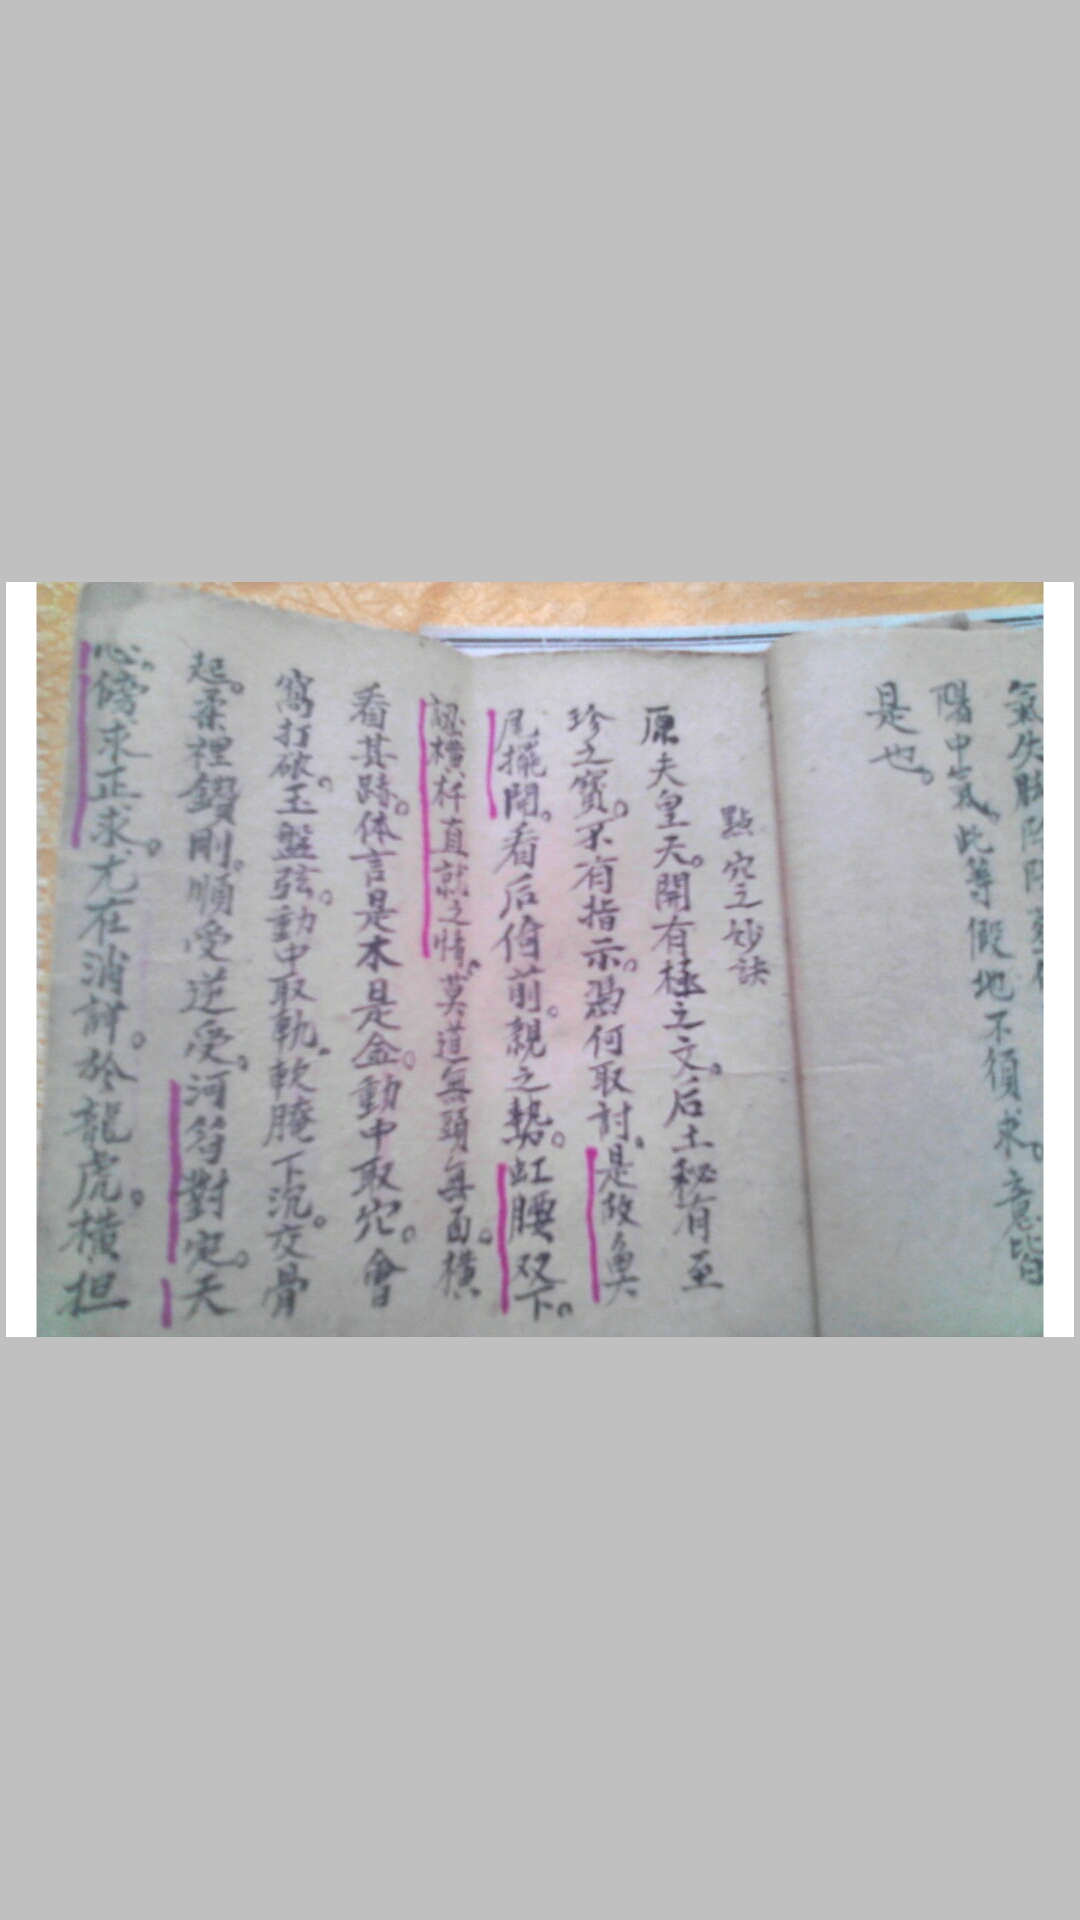 氣失
陽中氣。此等假地不須求。意皆
是也。
點穴之妙訣
原夫皇天。開有極之文。后土秘有至
珍之寶。不有指示。憑何取討。是故魚
尾擺開。看后倚前。親之勢。虹腰双下。
認橫杆直就之情。莫道無頭無面。橫
看其跡。体言是木是金。動中取穴。會
窩打破。玉盤弦。動中取軌。軟腌下沉。皮骨
起。柔裡鑽剛。順受逆受。河符對定。天
心。傍求正求。尤在消詳。於龍虎。橫担